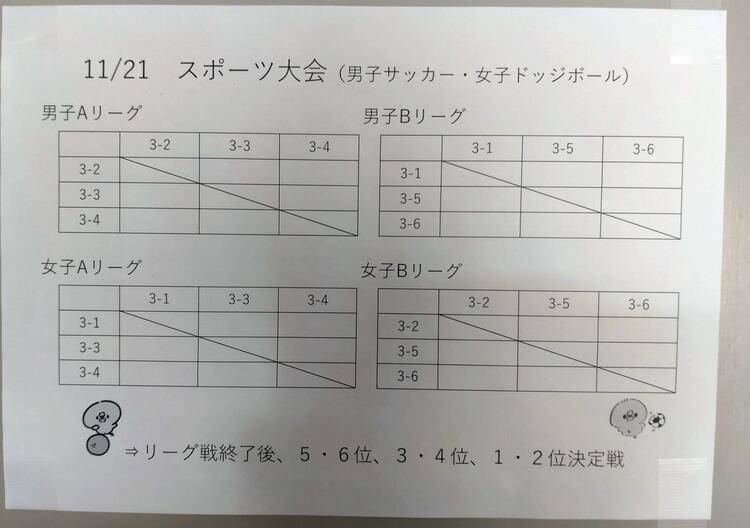 11/21　スポーツ大会（男子サッカー・女子ドッジボール）
男子Aリーグ
3-2 3-3 3-4
3-2
3-3
3-4
男子Bリーグ
3-1 3-5 3-6
3-1
3-5
3-6
女子Aリーグ
3-1 3-3 3-4
3-1
3-3
3-4
女子Bリーグ
3-2 3-5 3-6
3-2
3-5
3-6
⇒リーグ戦終了後、５・６位、３・４位、１・２位決定戦